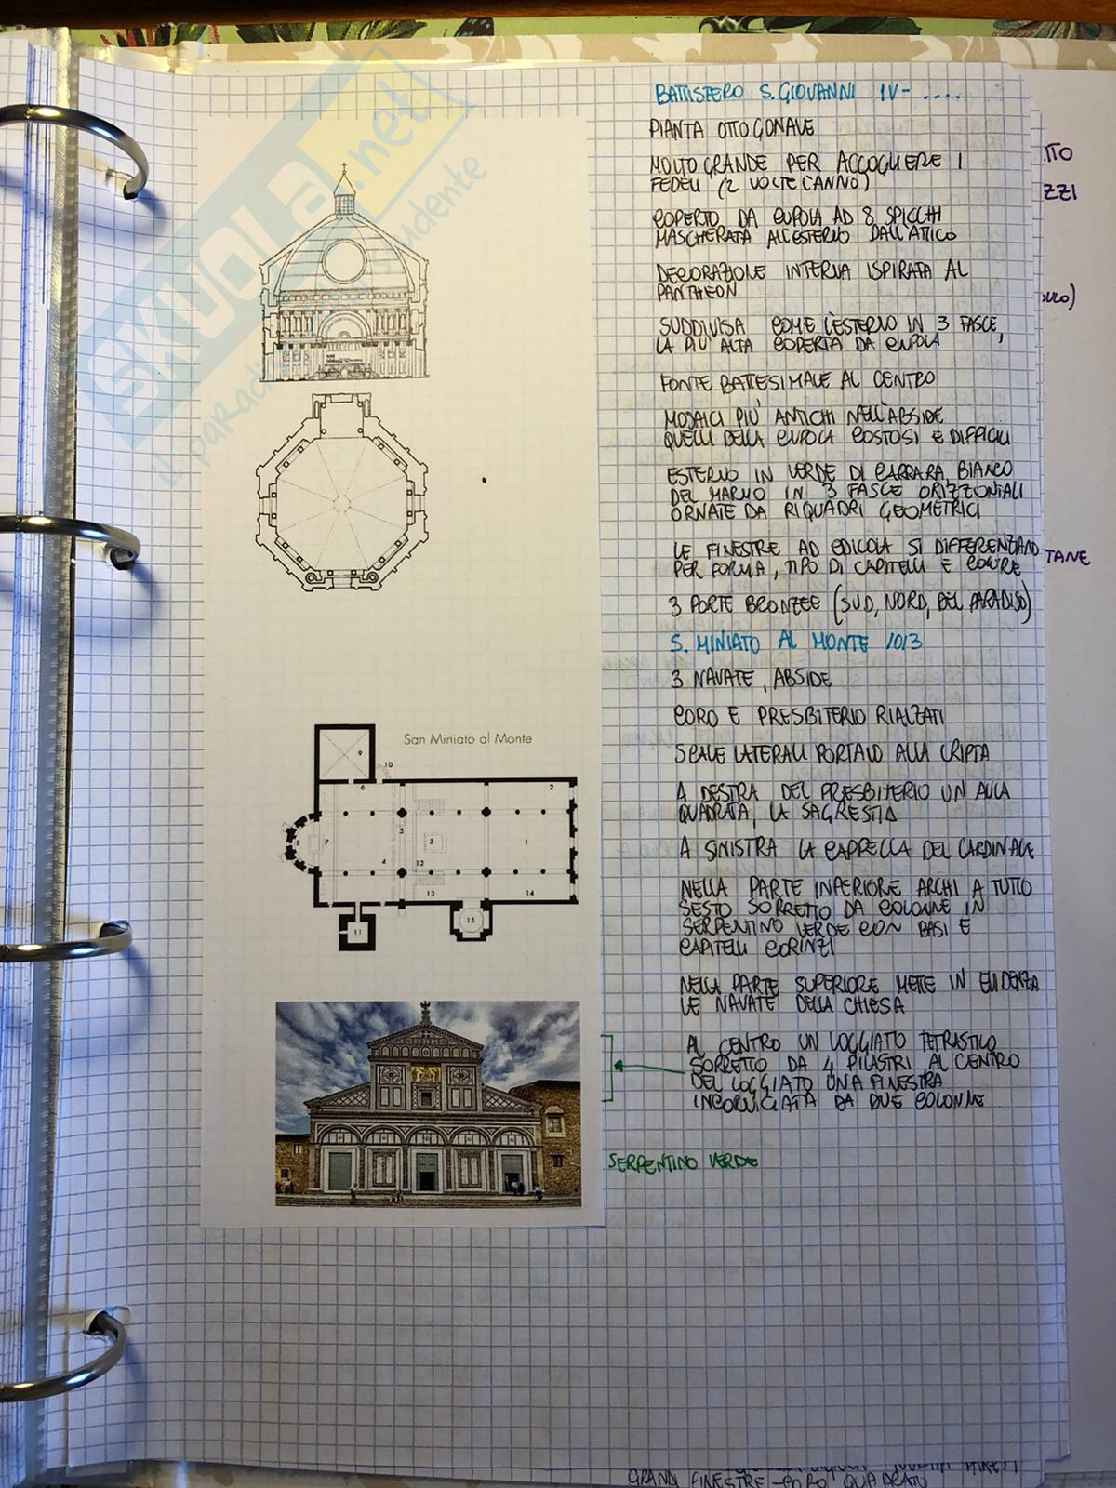 SKUOLA.net
il paradiso dello studente
BATTISTERO S. GIOVANNI IV- .....
PIANTA OTTOGONALE
MOLTO GRANDE PER ACCOGLIERE I
FEDELI (2 VOLTE L'ANNO)
COPERTO DA CUPOLA AD 8 SPICCHI
MASCHERATA ALL'ESTERNO DALL'ATTICO
DECORAZIONE INTERNA ISPIRATA AL
PANTHEON
SUDDIVISA COME L'ESTERNO IN 3 FASCE,
LA PIU' ALTA COPERTA DA CUPOLA
FONTE BATTESIMALE AL CENTRO
MOSAICI PIÙ ANTICHI NELL'ABSIDE
QUELLI DELLA CUPOLA COSTOSI E DIFFICILI
ESTERNO IN VERDE DI CARRARA, BIANCO
DEL MARMO IN 3 FASCE ORIZZONTALI
ORNATE DA RIQUADRI GEOMETRICI
LE FINESTRE AD EDICOLA SI DIFFERENZIANO
PER FORMA, TIPO DI CAPITELLI E COLORE
3 PORTE BRONZEE (SUD, NORD, DEL PARADISO)
S. MINIATO AL MONTE 1013
3 NAVATE, ABSIDE
CORO E PRESBITERIO RIALZATI
SCALE LATERALI PORTANO ALLA CRIPTA
A DESTRA DEL PRESBITERIO UN AULA
QUADRATA, LA SAGRESTIA
A SINISTRA LA CAPPELLA DEL CARDINALE
NELLA PARTE INFERIORE ARCHI A TUTTO
SESTO SORRETTO DA COLONNE IN
SERPENTINO VERDE CON BASI E
CAPITELLI CORINZI
NELLA PARTE SUPERIORE METTE IN EVIDENZA
LE NAVATE DELLA CHIESA
AL CENTRO UN LOGGIATO TETRASTILO
SORRETTO DA 4 PILASTRI AL CENTRO
DEL LOGGIATO UNA FINESTRA
INCORNICIATA DA DUE COLONNE
SERPENTINO VERDE
San Miniato al Monte
9
10
6
2
7
3
3
1
4
12
13
14
11
15
TTO
ZZI
TANE
GRANDI FINESTRE - CORO QUADRATO